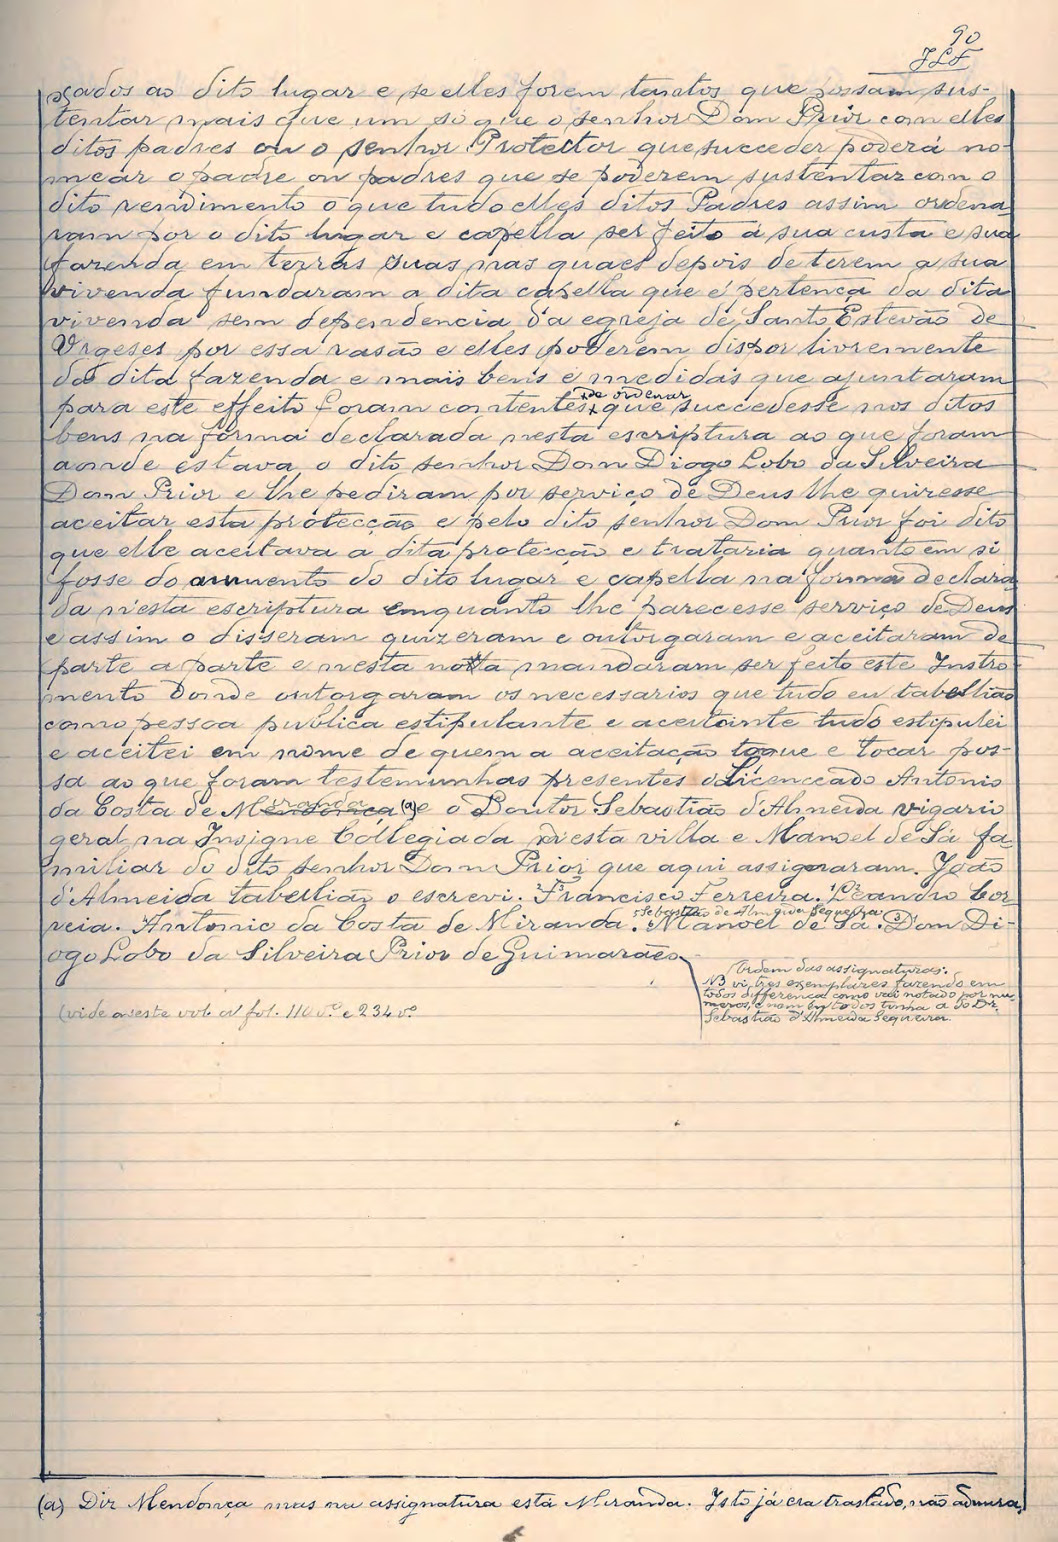 90
JLF
gados ao dito lugar e se elles forem tantos que possam sus-
tentar mais que um só que o senhor Dom Prior com elles
ditos padres ou o senhor Protector que succeder poderá no-
mear o padre ou padres que se poderem sustentar com o
dito rendimento o que tudo elles ditos Padres assim ordena-
ram por o dito lugar e capella ser feito á sua custa e sua
fazenda em terras suas nas quaes depois de terem a sua
vivenda fundaram a dita capella que é pertença da dita
vivenda sem dependencia da egreja de Santo Estevão de
Urgeses por essa rasão e elles poderem dispor livremente
da dita fazenda e mais bens e medidas que ajuntaram
de ordenar
para este effeito foram contentes que succedesse nos ditos
bens na fórma declarada nesta escriptura ao que foram
aonde estava o dito senhor Dom Diogo Lobo da Silveira
Dom Prior e lhe pediram por serviço de Deus lhe quizesse
aceitar esta protecção e pelo dito senhor Dom Prior foi dito
que elle aceitava a dita protecção e trataria quanto em si
fosse do aumento do dito lugar e capella na forma declara
da n'esta escriptura emquanto lhe parecesse serviço de Deus
e assim o disseram quizeram e outorgaram e aceitaram de
parte a parte e nesta nota mandaram ser feito este Instro-
mento donde outorgaram os necessarios que tudo eu tabellião
como pessoa publica estipulante e aceitante tudo estipulei
e aceitei em nome de quem a aceitação toque e tocar pos-
sa ao que foram testemunhas presentes o Licenceado Antonio
da Costa de Mendonça Miranda (a) e o Doutor Sebastião d'Almeida vigario
geral na Insigne Collegiada n'esta villa e Manoel de Sá fa-
miliar do dito senhor Dom Prior que aqui assignaram. João
d'Almeida tabellião o escrevi. Francisco Ferreira. Leandro Cor-
Sebastião de Almeida Sequeira
reia. Antonio da Costa de Miranda. Manoel de Sá. Dom Di-
ogo Lobo da Silveira Prior de Guimarães
Ordem das assignaturas.
NB vi tres exemplares fazendo em
todos differença como vai notado por nu-
meros, e nem em todos tinha a do Dr.
Sebastião d'Almeida Sequeira.
(vide neste vol. a fol. 110 v.º e 234 v.º
(a) Diz Mendonça mas na assignatura está Miranda. Isto já era traslado, não admira.